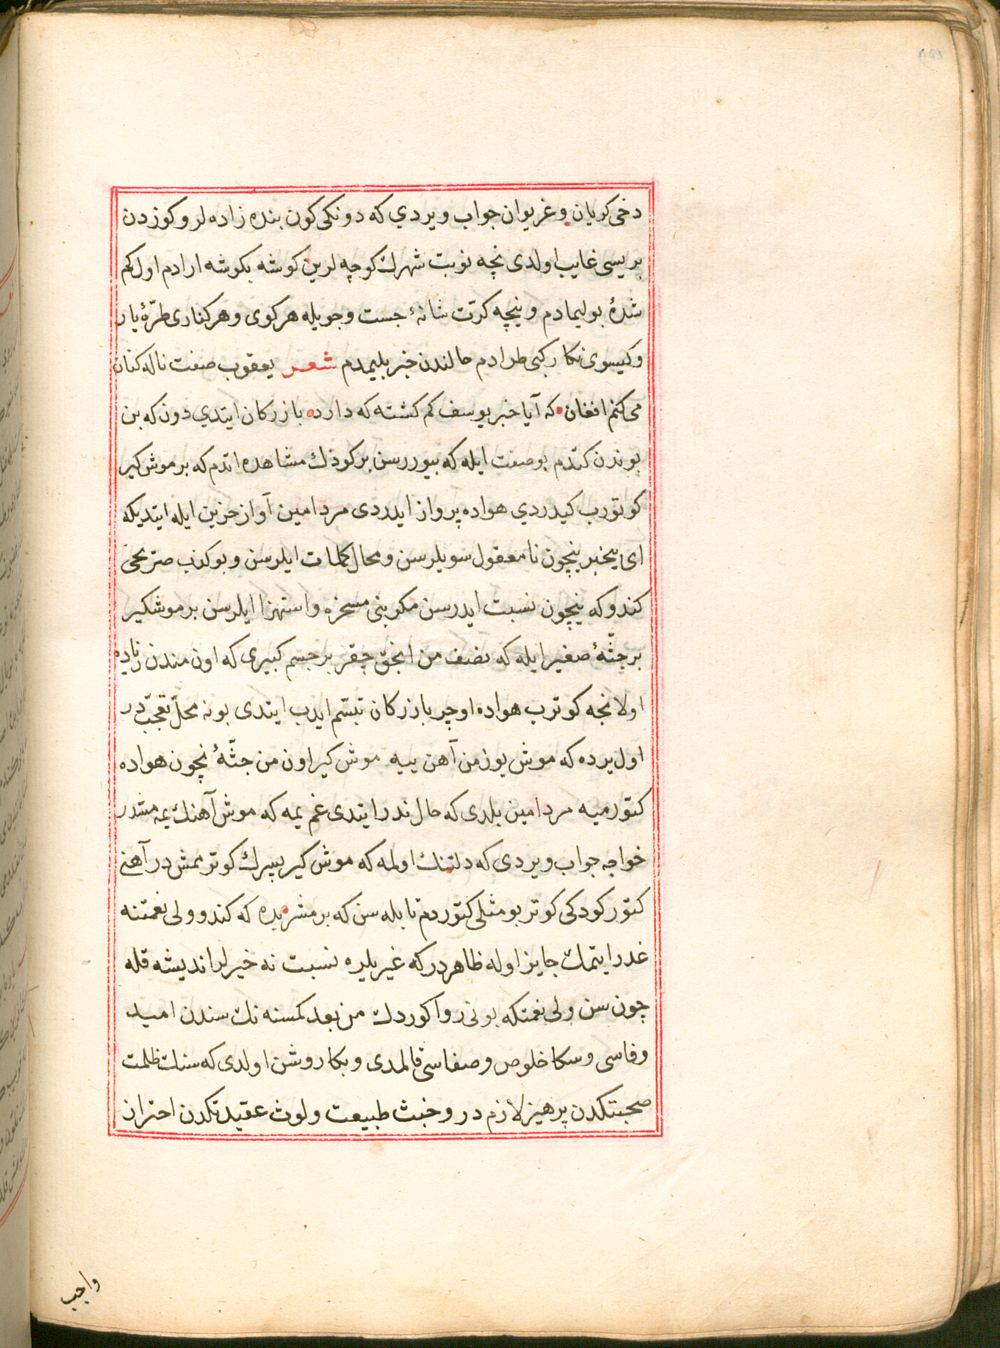 دخی کریان و غریوان جواب ویردی که دونکی کون بنده زاده لر و کوزدن
بریسی غایب اولدی نچه نوبت شهرك کوچه لرین کوشه بکوشه ارادم اول کم
شدۀ بولیمادم و نیچه کرت شانۀ جست و جویله هر کوی و هر کناری طرّۀ یار
و کیسوی نکار کبی طرادم حالندن خبر بلیمدم شعر یعقوب صفت ناله کنان
می کنم افغان که آیا خبر یوسف کم کشته که دارد بازرکان ایتدی دون که بن
بوندن کتدم بو صفت ایله که بیوررسن بر کودك مشاهده اتدم که بر موش کیر
کوتورب کیدردی هواده پرواز ایدردی مرد امین آواز حزین ایله ایتدیکه
ای بیخبر نیچون نامعقول سویلرسن و محال کلمات ایلرسن و بو کذب صریحی
کندوکه نیچون نسبت ایدرسن مکر بنی مسخره و استهزا ایلرسن بر موشکیر
بر جثّۀ صغیر ایله که نصف من انجق چقر بر جسم کبیری که اون مندن زیاده
اولا نجه کوترب هواده اوچر بازرکان تبسّم ایدب ایتدی بو نه محلّ تعجّبدر
اول یرده که موش یوز من آهن ییه موش کیر اون من جثّۀ نچون هواده
کتورمیه مرد امین بلدی که حال ندر ایتدی غم یمه که موش آهنك یمه مشدر
خواجه جواب ویردی که دلتنك اولمه که موش کیر پسرك کوترممش در آهنی
کتور کودکی کوتر بو مثلی کتوردم تا بله سن که بر مشربده که کندو ولی نعمتنه
غدر ایتمك جایز اوله ظاهردر که غیریلره نسبت نه خیرلر اندیشه قله
چون سن ولی نعمتکه بونی روا کوردك من بعد کمسنه نك سندن امید
وفاسی و سکا خلوص و صفاسی قالمدی و بکا روشن اولدی که سنك ظلمت
صحبتکدن پرهیز لازم در و خبث طبیعت و لوث عقیدتکدن احتراز
واجب